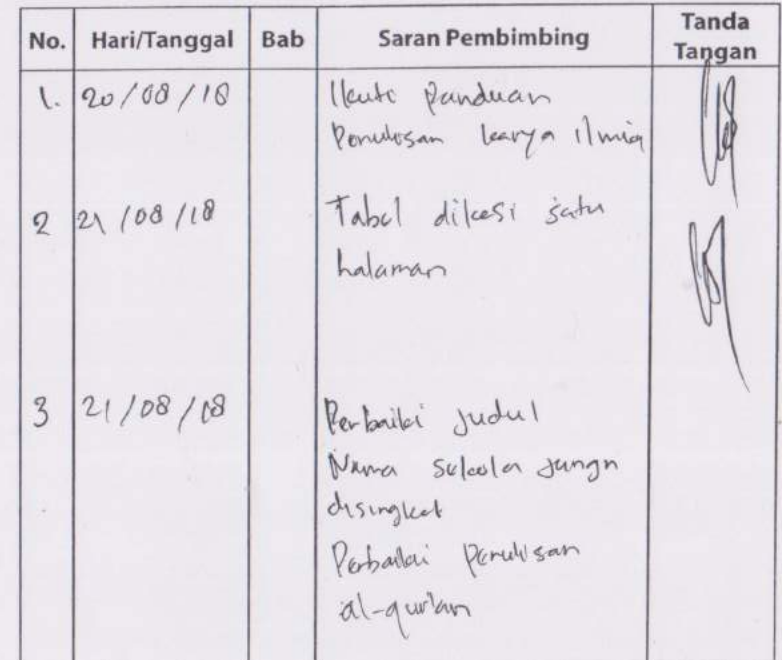 No. Hari/Tanggal Bab Saran Pembimbing Tanda Tangan
1. 20/08/18 Ikuti Panduan
Penulisan karya ilmia
2 21/08/18 Tabel dikasi satu
halaman
3 21/08/18 Perbaiki Judul
Nama sekola Jangn
disingkat
Perbaiki Penulisan
al-qur'an